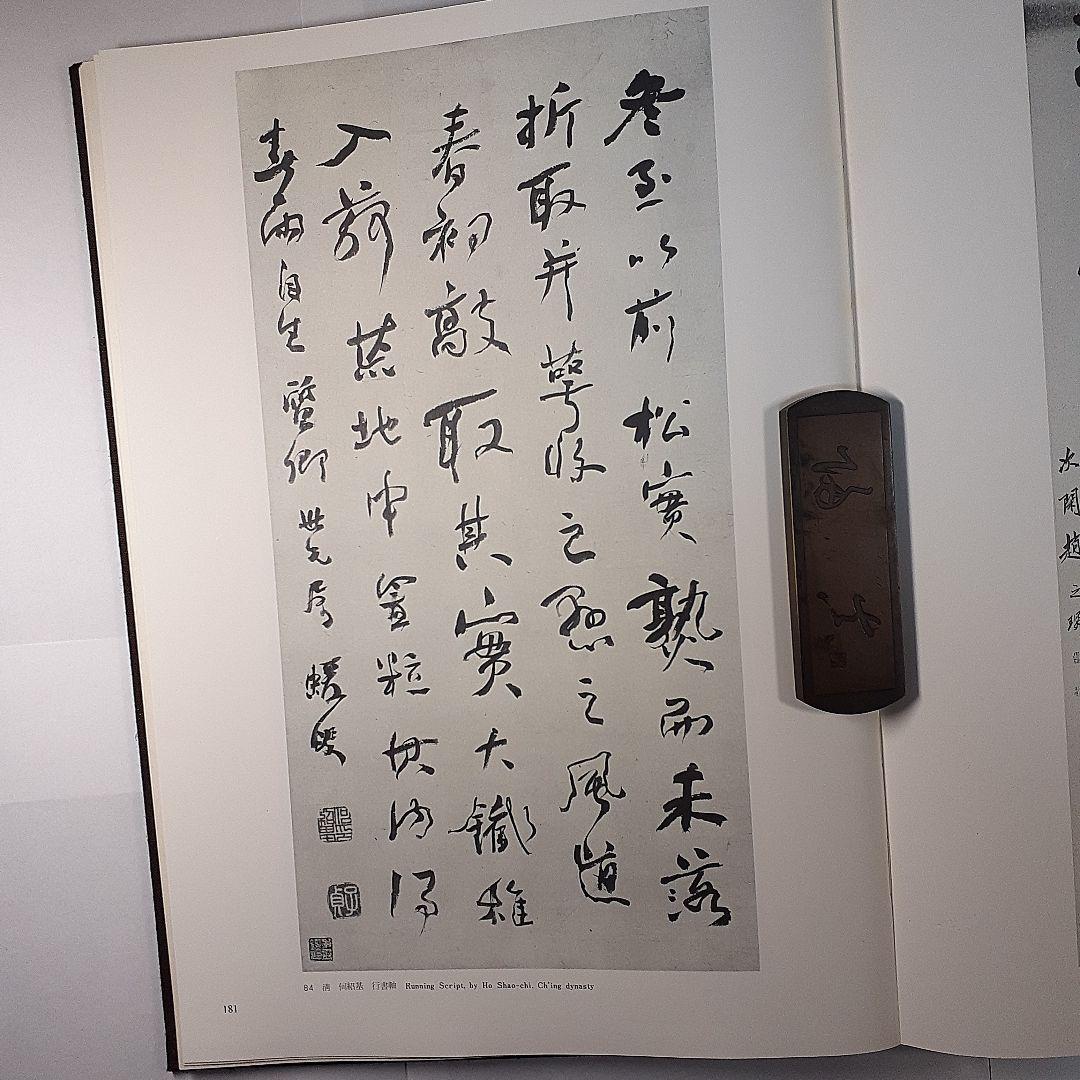 冬至以前松實熟而未落
折取并萼收之懸之風道
春初敲取其實大鐵錐
入荒地中置粒其內得
春雨自生 卿世兄屬 蝯叟
何紹基印
子貞
84 清 何紹基 行書軸 Running Script, by Ho Shao-chi. Ch'ing dynasty
181